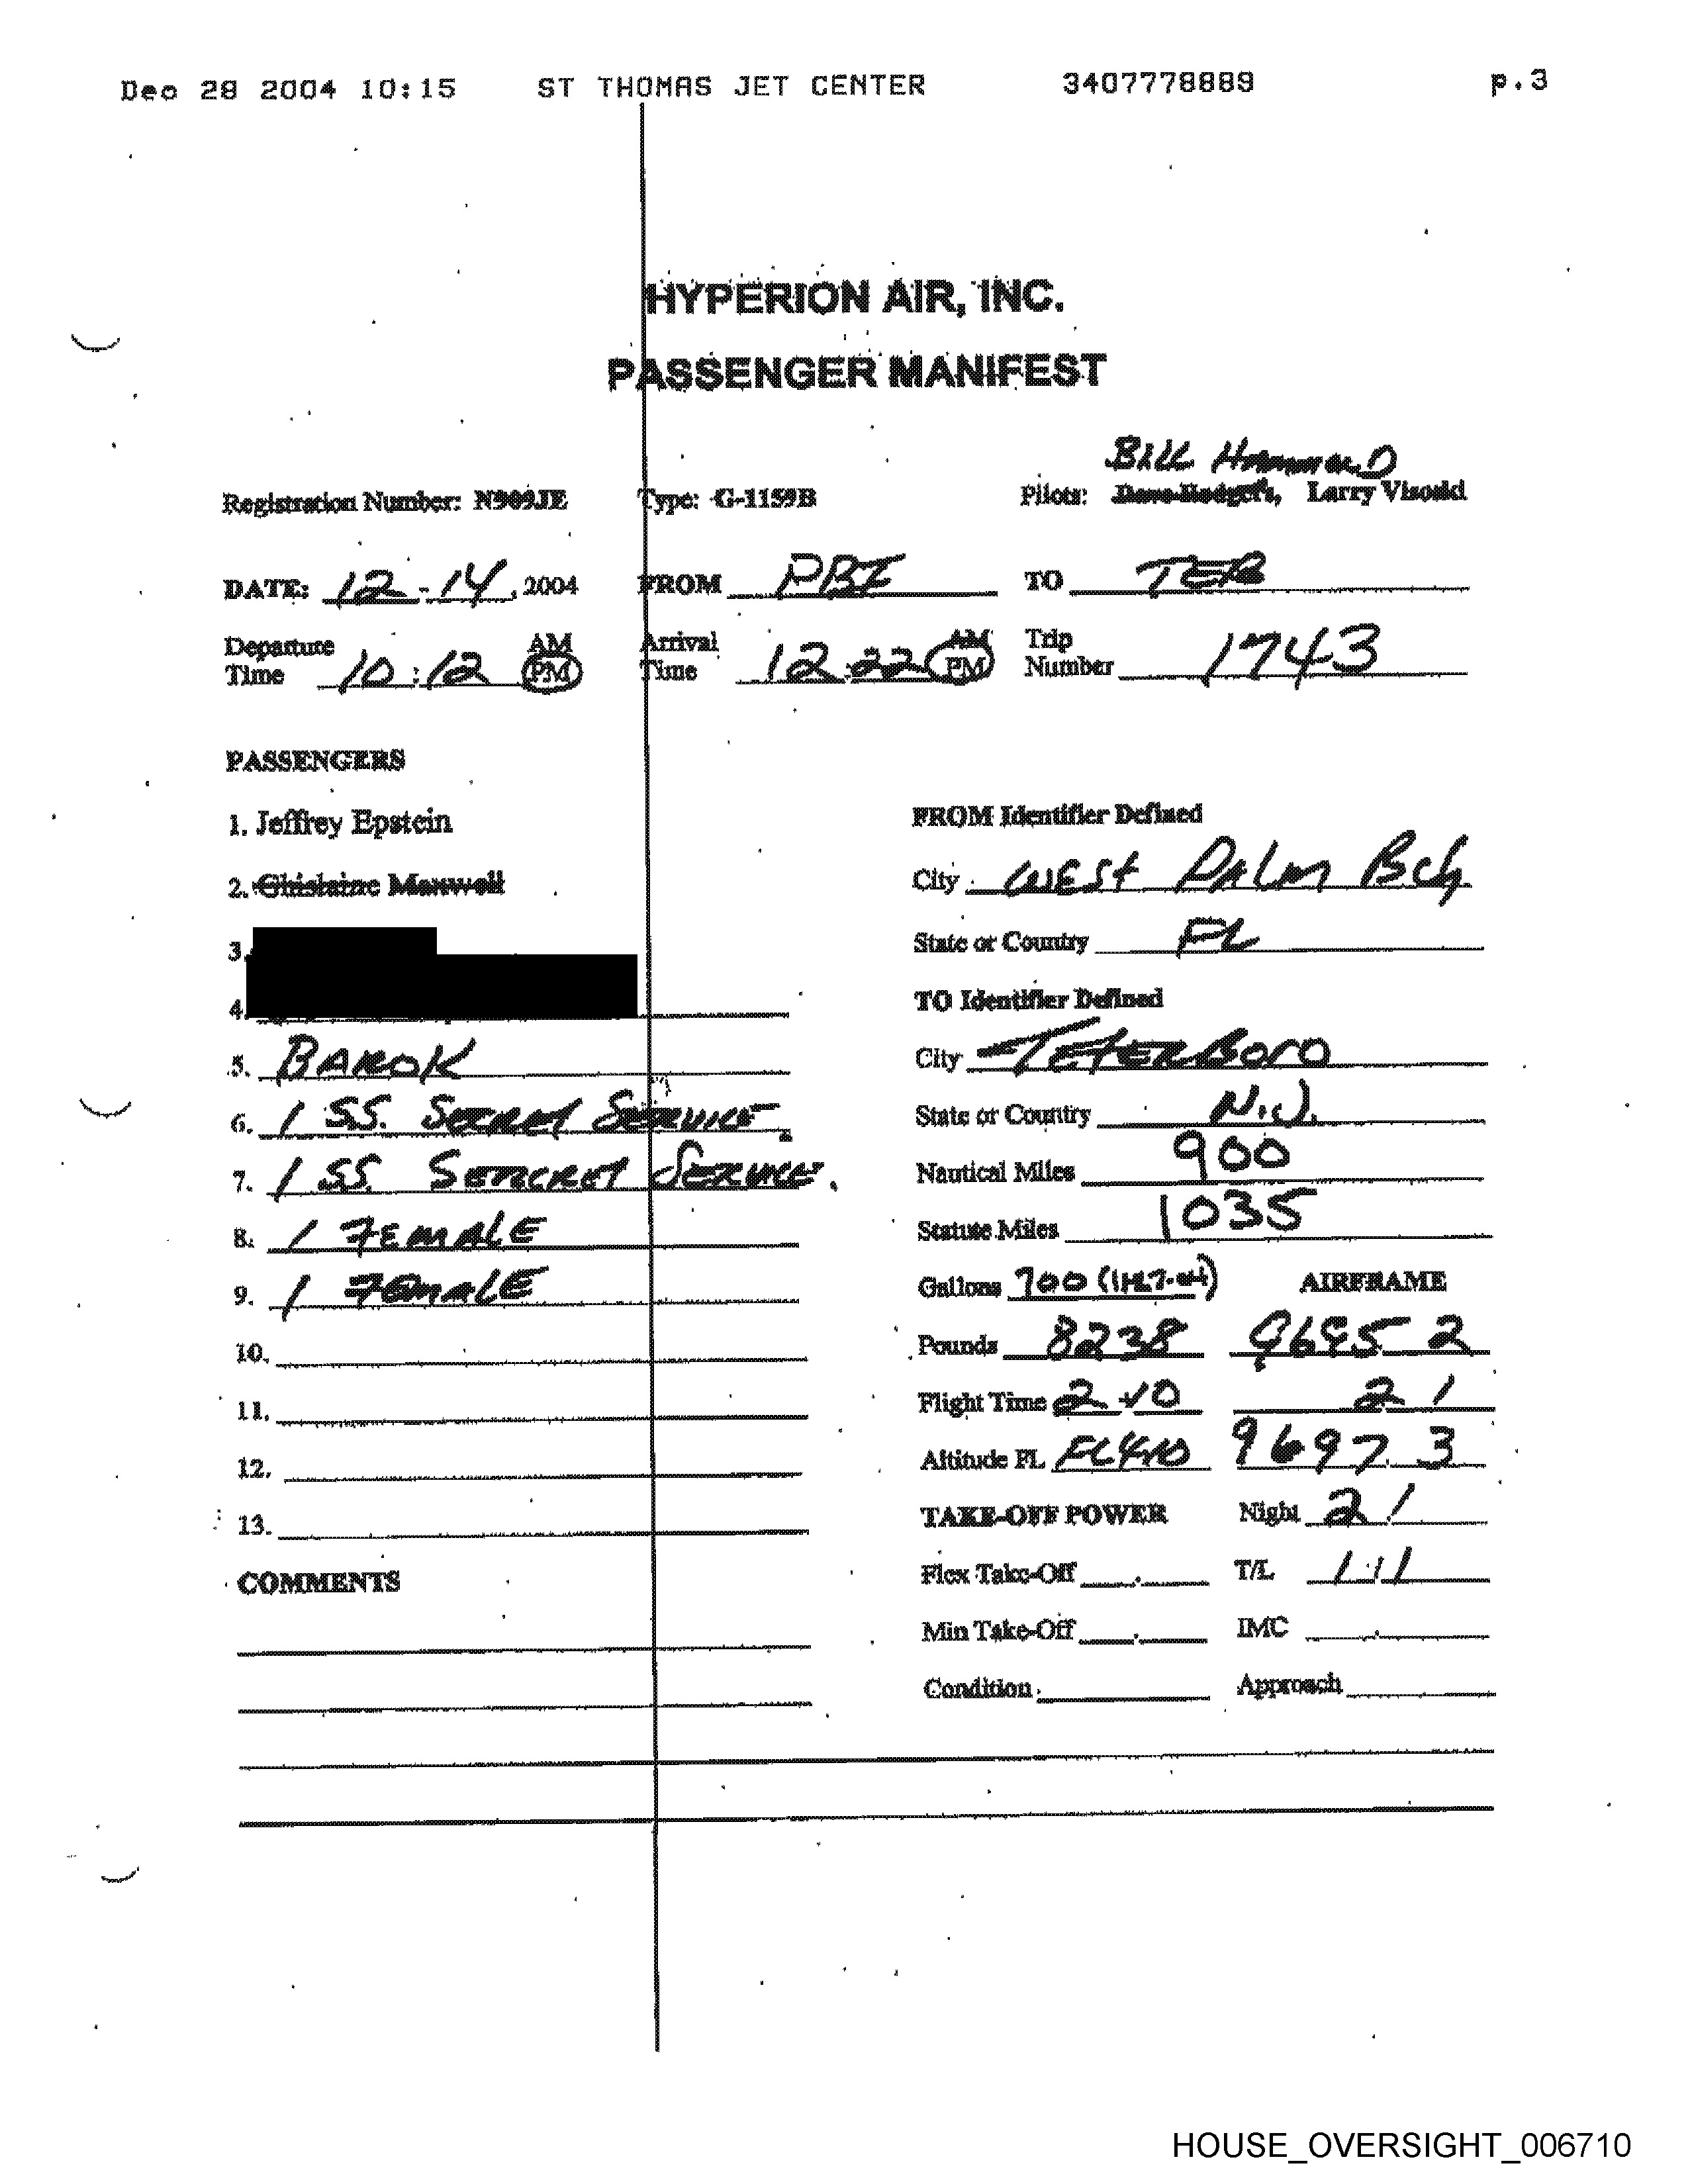 Dec 28 2004 10:15 ST THOMAS JET CENTER 3407778889 p.3
HYPERION AIR, INC.
PASSENGER MANIFEST
BILL HAMMOND
Registration Number: N909JE Type: G-1159B Pilots: Dave Rodgers, Larry Visoski
DATE: 12-14, 2004 FROM PBI TO TEB
Departure Time 10:12 AM PM Arrival Time 12:22 AM PM Trip Number 1743
PASSENGERS
1. Jeffrey Epstein
2. Ghislaine Maxwell
3.
4.
5. BAROK
6. 1 SS. SECRET SERVICE.
7. 1 SS. SERCRET SERVICE.
8. 1 FEMALE
9. 1 FEMALE
10.
11.
12.
13.
COMMENTS
FROM Identifier Defined
City WEST PALM Bch
State or Country FL
TO Identifier Defined
City TETERBORO
State or Country N.J.
Nautical Miles 900
Statute Miles 1035
Gallons 700 AIRFRAME
Pounds 8238 9695 2
Flight Time 2 10 2 1
Altitude FL FL410 9697.3
TAKE-OFF POWER Night 2 1
Flex Take-Off . T/L 1 1
Min Take-Off . IMC .
Condition Approach
HOUSE_OVERSIGHT_006710